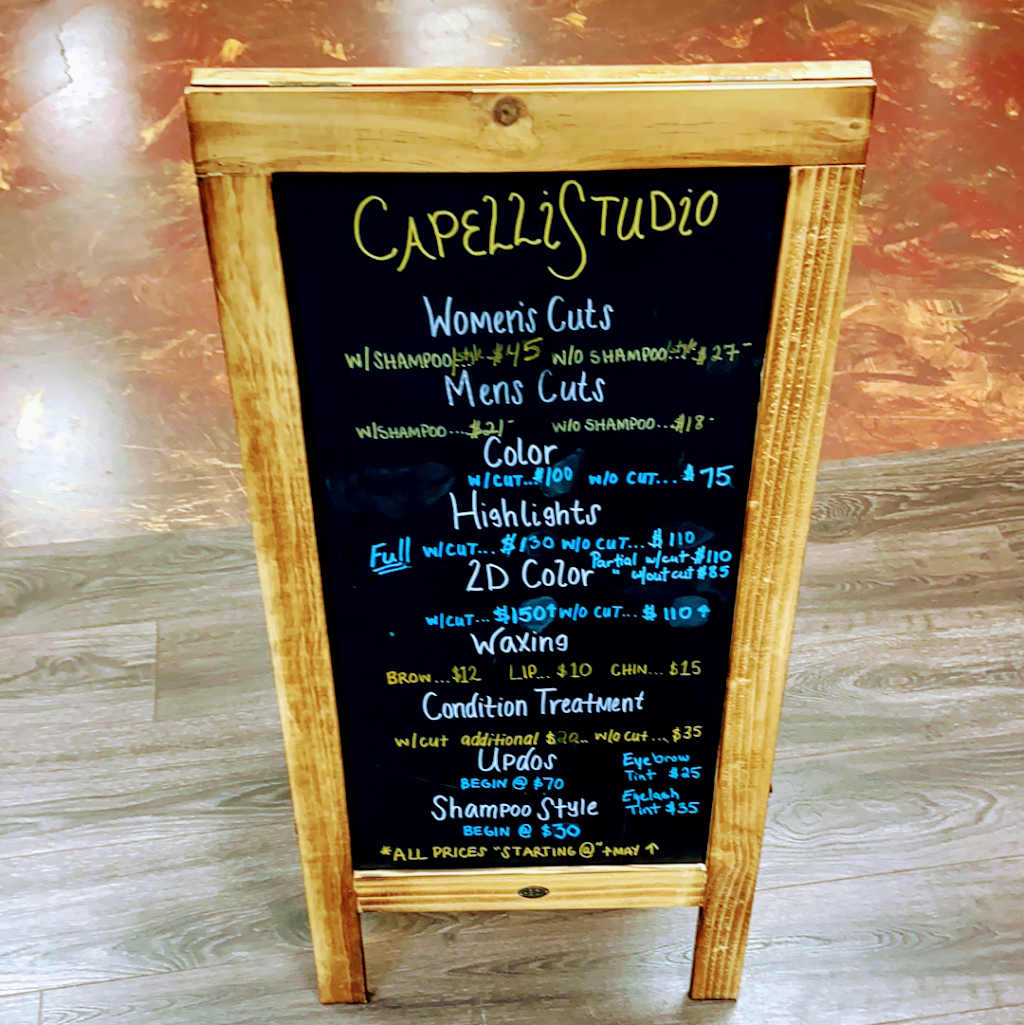 CAPELLi STUDiO
Women's Cuts
W/SHAMPOO/style..$45 W/O SHAMPOO/style..$27-
Mens Cuts
W/SHAMPOO...$21- W/O SHAMPOO...$18-
Color
W/CUT..$100 W/O CUT...$75
Highlights
Full W/CUT...$130 W/O CUT...$110
Partial w/cut.$110
" w/out cut $85
2D Color
W/CUT...$150↑ W/O CUT...$110↑
Waxing
BROW...$12 LIP...$10 CHIN...$15
Condition Treatment
W/cut additional W/o cut...$35
Updos
BEGIN @ $70
Eyebrow
Tint $25
Eyelash
Tint $35
Shampoo Style
BEGIN @ $30
*ALL PRICES "STARTING @" + MAY ↑